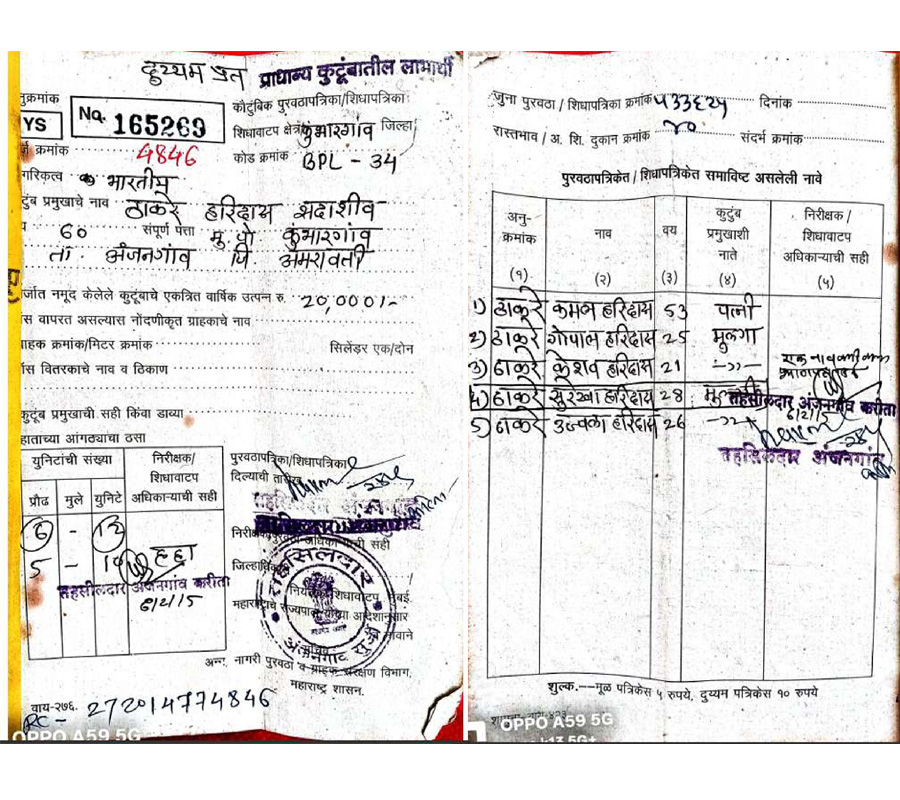 दुय्यम प्रत प्राधान्य कुटूंबातील लाभार्थी
नुक्रमांक
YS No. 165269
कौटुंबिक पुरवठापत्रिका/शिधापत्रिका
शिधावाटप क्षेत्र कुंभारगांव जिल्हा
क्रमांक 4846
कोड क्रमांक BPL - 34
गरिकत्व भारतीय
टुंब प्रमुखाचे नाव ठाकरे हरिदास सदाशीव
य 60 संपूर्ण पत्ता मु पो कुंभारगांव
ता. अंजनगांव जि अमरावती
र्जात नमूद केलेले कुटूंबाचे एकत्रित वार्षिक उत्पन्न रु. 20,000/-
स वापरत असल्यास नोंदणीकृत ग्राहकाचे नाव
ाहक क्रमांक/मिटर क्रमांक सिलेंडर एक/दोन
स वितरकाचे नाव व ठिकाण
कुटूंब प्रमुखाची सही किंवा डाव्या
हाताच्या आंगठ्याचा ठसा
युनिटांची संख्या
निरीक्षक/
शिधावाटप
अधिकाऱ्याची सही
प्रौढ मुले युनिटे
6 - 12
5 - 10
तहसीलदार अंजनगांव करीता
6/2/15
पुरवठापत्रिका/शिधापत्रिका
दिल्याची तारीख
तहसीलदार
अंजनगांव सुर्जी
महाराष्ट्राचे राज्यपाल यांच्या आदेशानुसार
अन्न, नागरी पुरवठा व ग्राहक संरक्षण विभाग,
महाराष्ट्र शासन.
वाय-२७६.
RC- 272014774846
OPPO A59 5G
जुना पुरवठा / शिधापत्रिका क्रमांक ५३३६२५ दिनांक
रास्तभाव / अ. शि. दुकान क्रमांक ४० संदर्भ क्रमांक
पुरवठापत्रिकेत / शिधापत्रिकेत समाविष्ट असलेली नावे
अनु-
क्रमांक
नाव
वय
कुटूंब
प्रमुखाशी
नाते
निरीक्षक/
शिधावाटप
अधिकाऱ्याची सही
(१) (२) (३) (४) (५)
1) ठाकरे कमल हरिदास 53 पत्नी
2) ठाकरे गोपाल हरिदास 25 मुलगा
3) ठाकरे केशव हरिदास 21 -"-
4) ठाकरे सुरेखा हरिदास 28
तहसीलदार अंजनगांव करीता
6/2/15
5) ठाकरे उज्वला हरिदास 26 -"-
तहसिलदार अंजनगांव
शुल्क.--मूळ पत्रिकेस ५ रुपये, दुय्यम पत्रिकेस १० रुपये
OPPO A59 5G